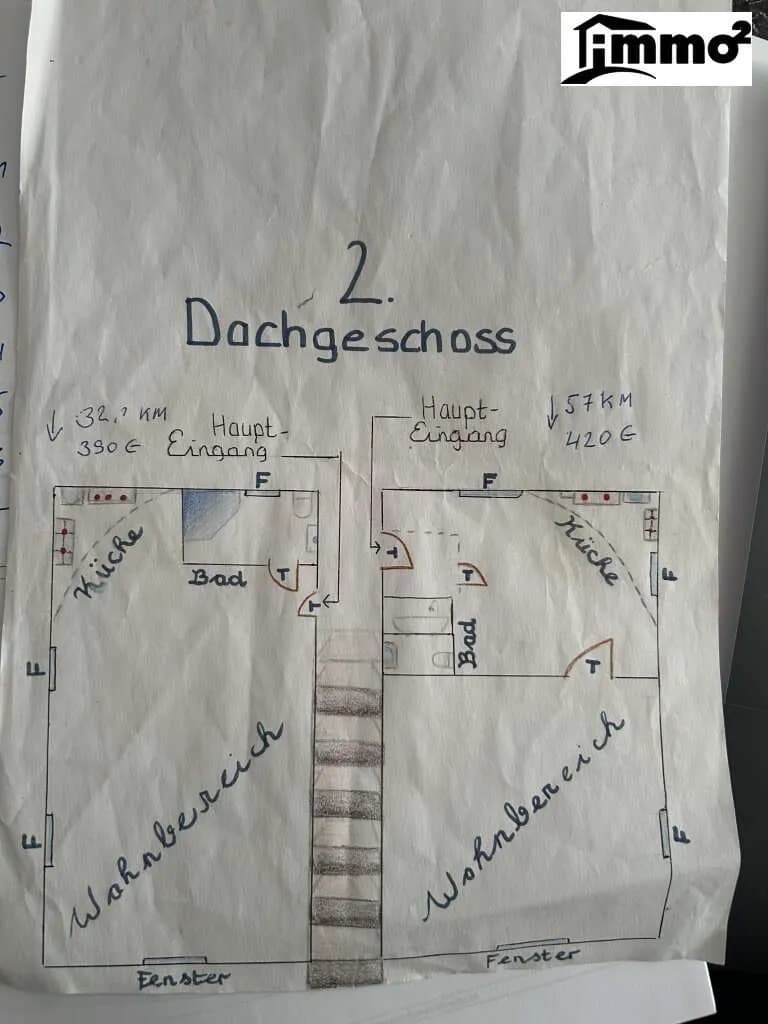 immo²
2.
Dachgeschoss
Haupt-
Eingang
390 €
Haupt-
Eingang
57 KM
420 €
F
F
Küche
Bad
T
T
F
T
T
Küche
F
Bad
T
F
Wohnbereich
Wohnbereich
F
F
Fenster
Fenster